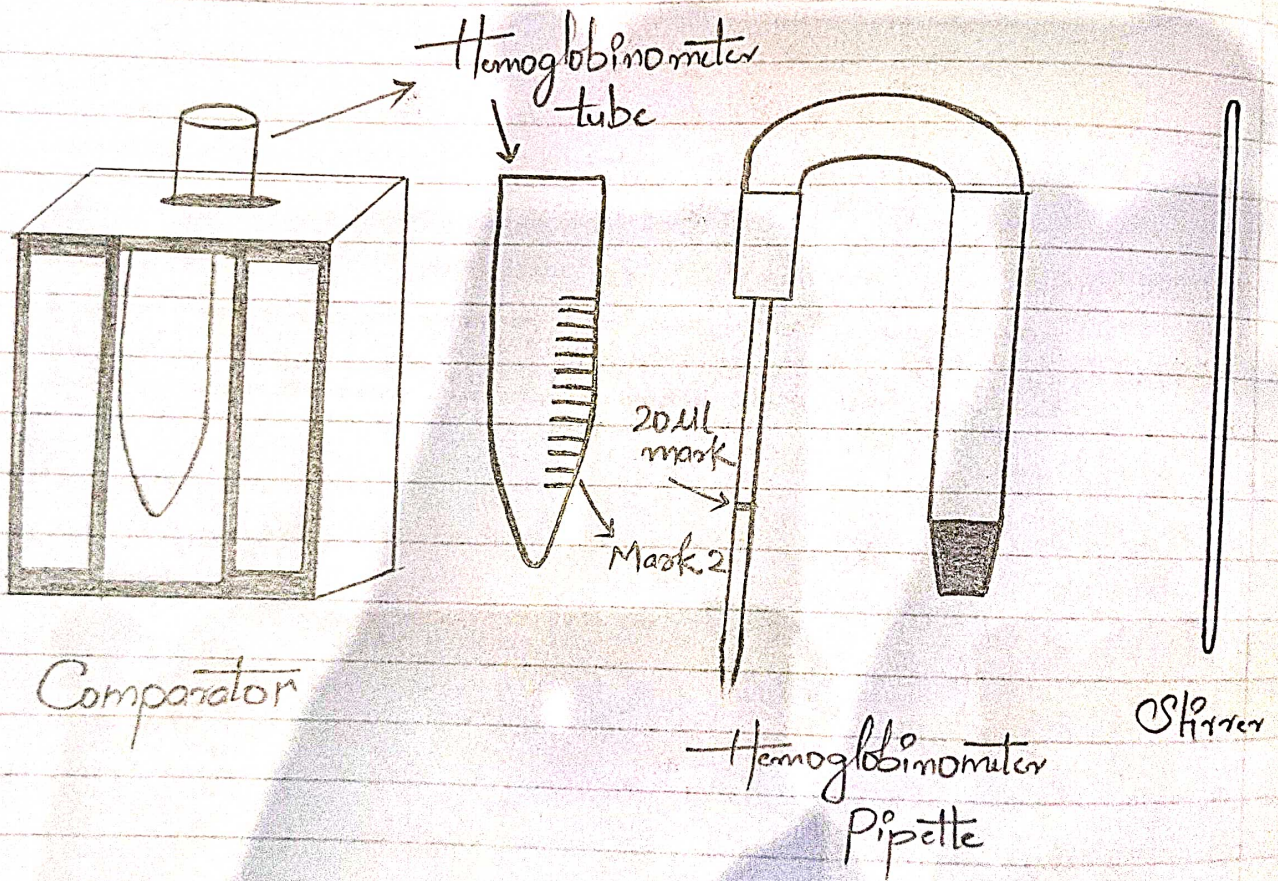 Hemoglobinometer
tube
20 µl
mark
Mark 2
Comparator
Stirrer
Hemoglobinometer
Pipette